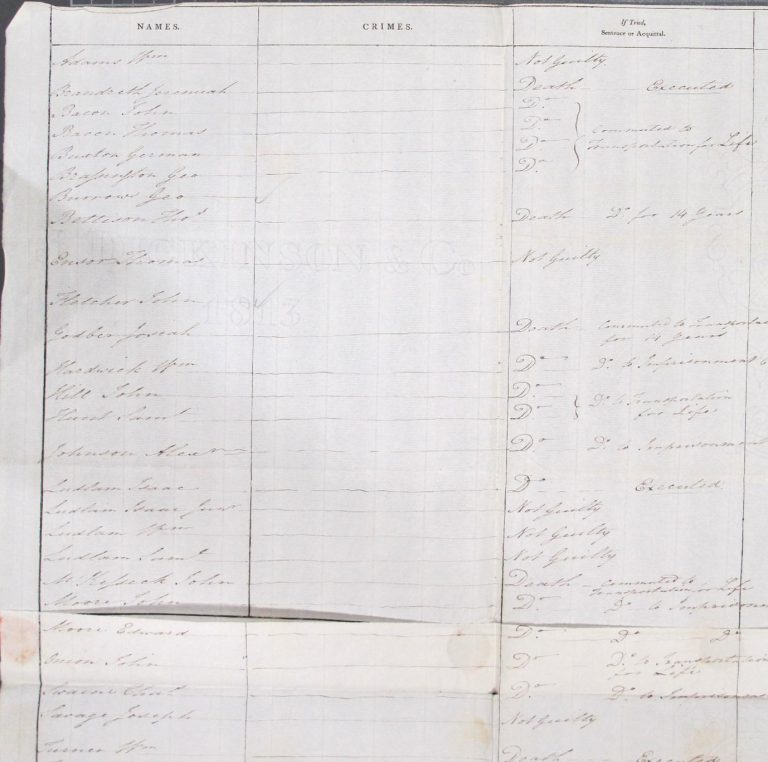 NAMES. CRIMES. If Tried, Sentence or Acquittal.
Adams Wm Not Guilty
Brandreth Jeremiah Death Executed
Bacon John Do
Bacon Thomas Do Commuted to
Buxton German Do Transportation for Life
Brassington Geo Do
Burrows Geo
Betteson Thos Death Do for 14 Years
Ensor Thomas Not Guilty
Fletcher John
Godber Josiah Death Commuted to
for 14 Years
Hardwick Wm Do Do to Imprisonment
Hill John Do Do to Transportation
Hunt Saml Do for Life
Johnson Alexr Do Do to Imprisonment
Ludlam Isaac Do Executed
Ludlam Isaac Junr Not Guilty
Ludlam Wm Not Guilty
Ludlam Saml Not Guilty
McKessick John Death Commuted to
Transportation for Life
Moore John Do Do to
Moore Edward Do Do Do
Onion John Do Do to Transportation
for Life
Swaine Chas Do Do to Imprisonment
Savage Joseph Not Guilty
Turner Wm Death Executed
& Co
1813